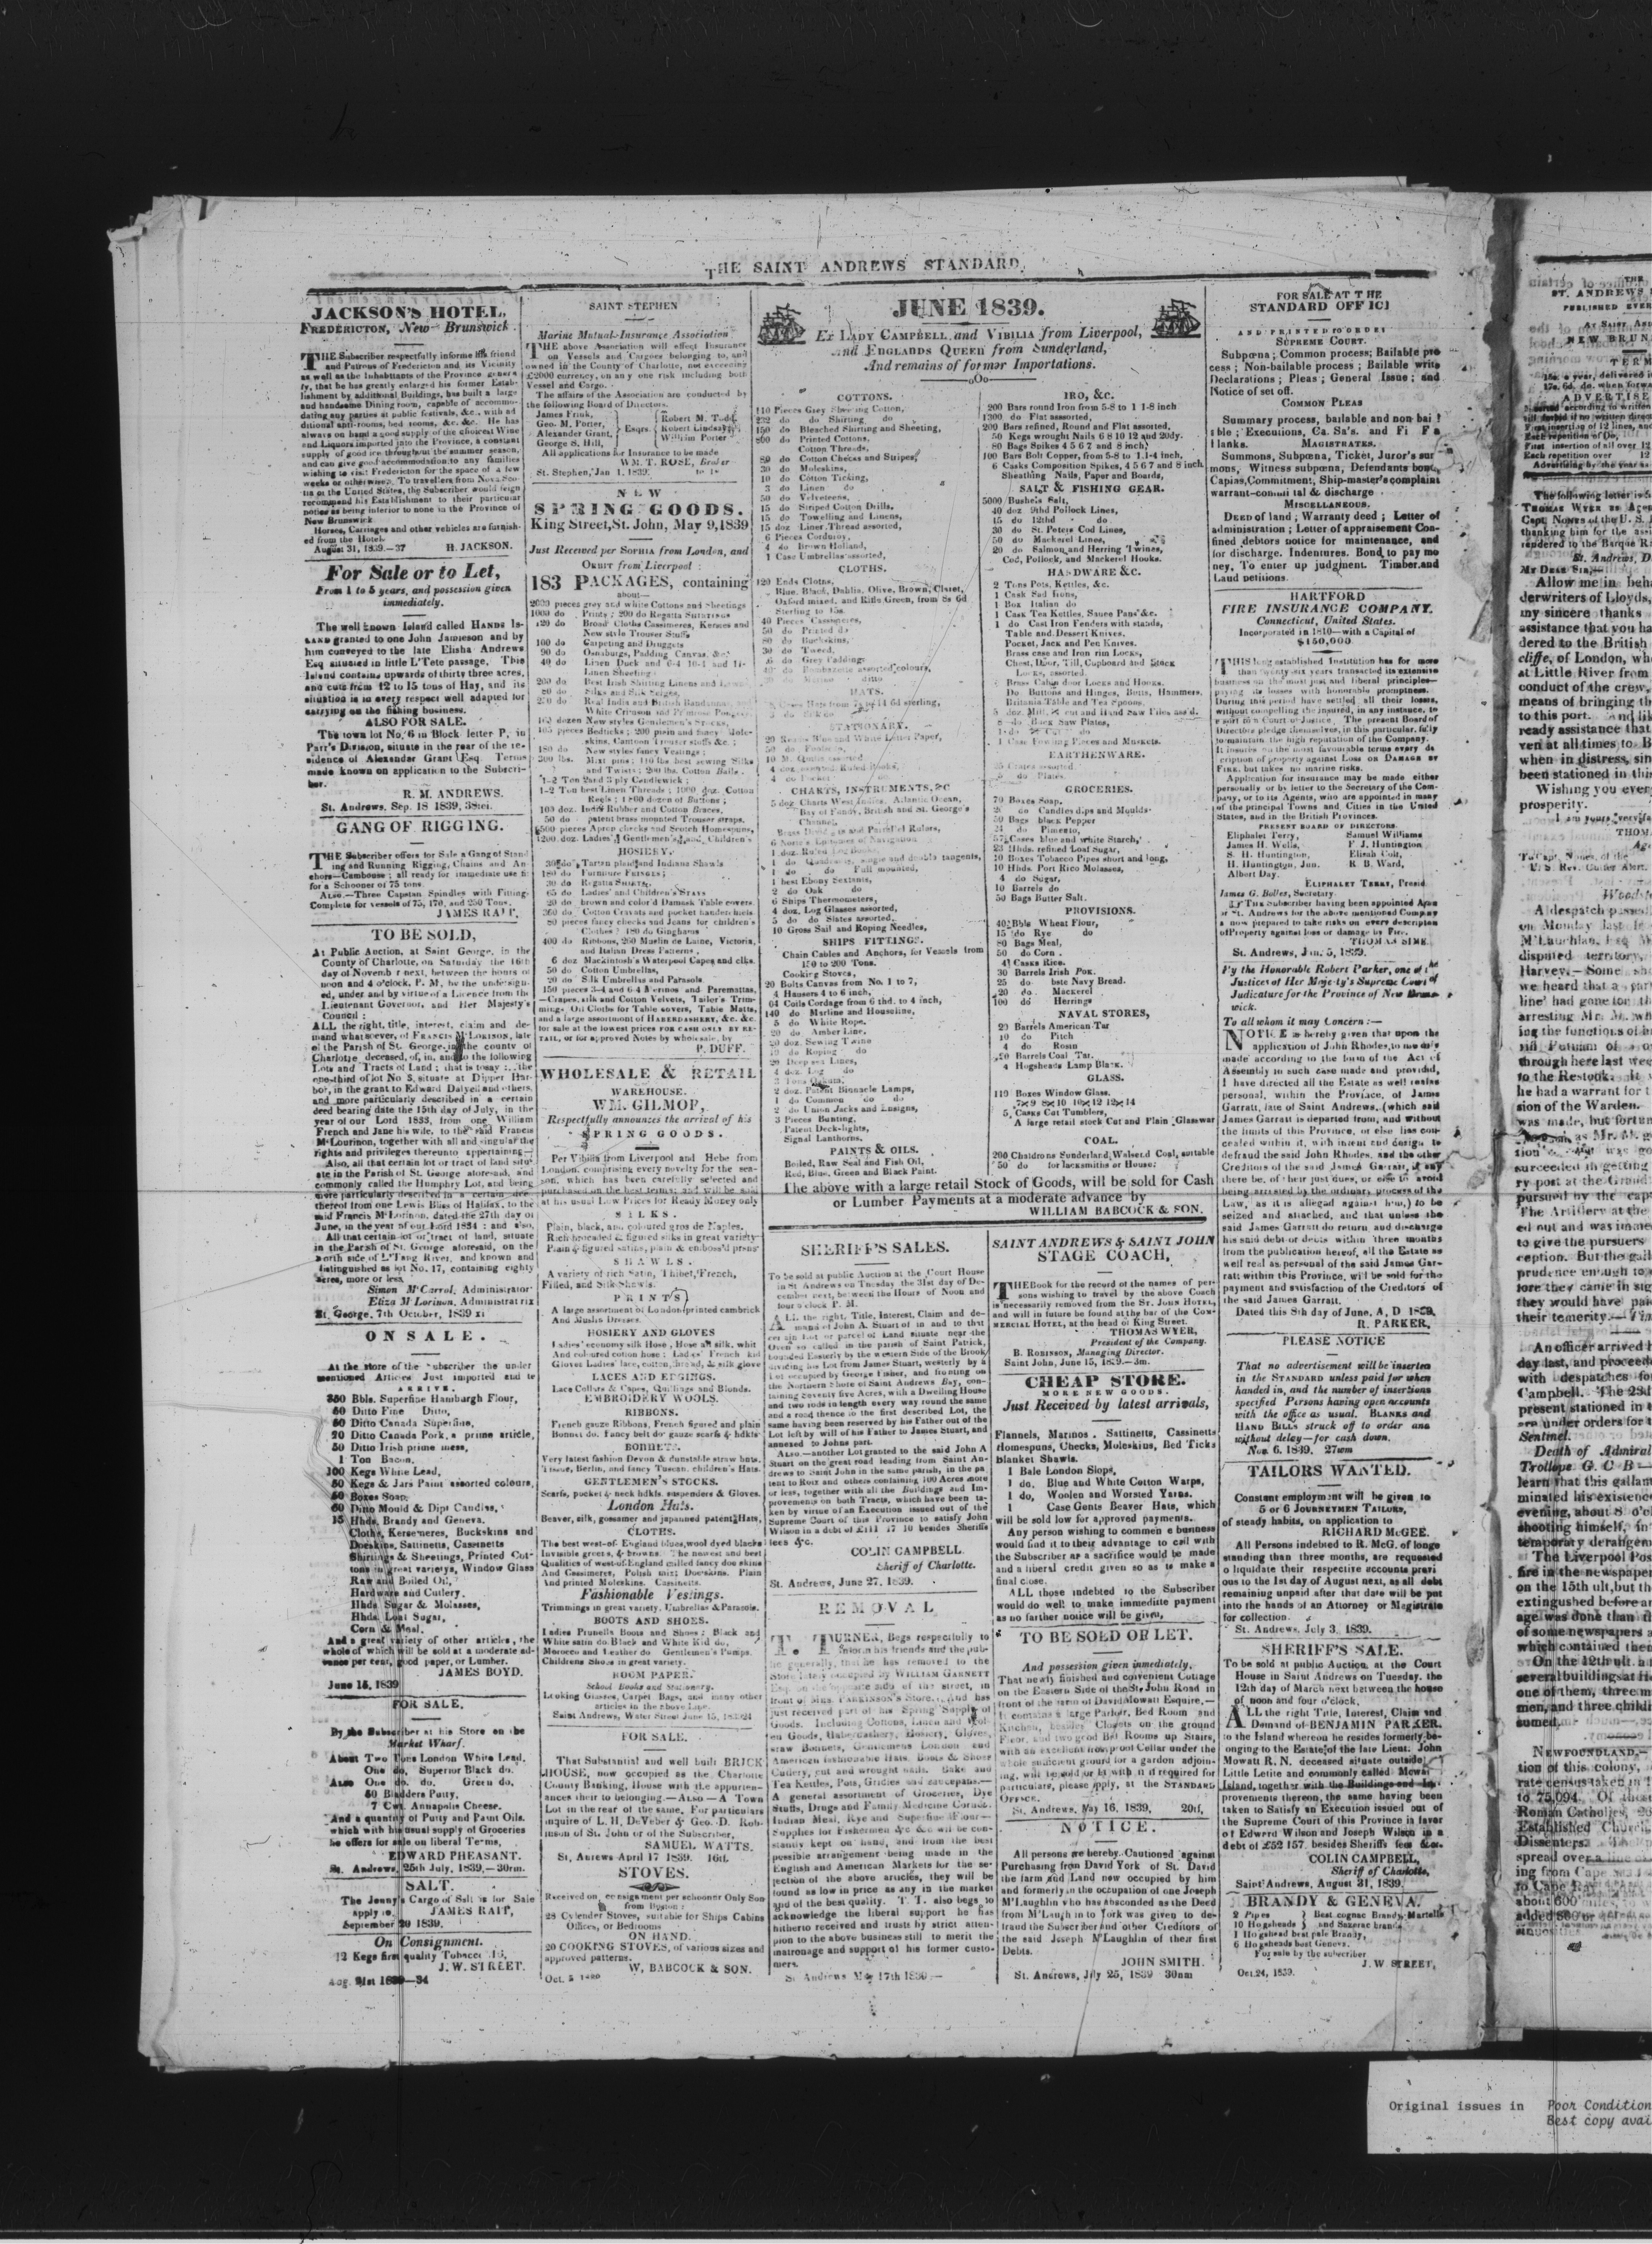 THE SAINT ANDREWS STANDARD.
JACKSON'S HOTEL,
FREDERICTON, New Brunswick
THE Subscriber respectfully informs his friend
and Patrons of Fredericton and its Vicinity
as well as the Inhabitants of the Province genera
ly, that he has greatly enlarged his former Estab-
lishment by additional Buildings, has built a large
and handsome Dining room, capable of accommo-
dating any parties at public festivals, &c., with ad
ditional anti-rooms, bed rooms, &c. &c. He has
always on hand a good supply of the choicest Wine
and Liquors imported into the Province, a constant
supply of good ice throughout the summer season,
and can give good accommodation to any families
wishing to visit Fredericton for the space of a few
weeks or otherwise. To travellers from Nova Sco-
tia or the United States, the Subscriber would feign
recommend his Establishment to their particular
notice as being interior to none in the Province of
New Brunswick
Horses, Carriages and other vehicles are furnish-
ed from the Hotel.
August 31, 1839.—37 H. JACKSON.
For Sale or to Let,
From 1 to 5 years, and possession given
immediately.
The well known Island called HANDS IS-
LAND granted to one John Jamieson and by
him conveyed to the late Elisha Andrews
Esq situated in little L'Tete passage, This
Island contains upwards of thirty three acres,
and cuts from 12 to 15 tons of Hay, and its
situation is in every respect well adapted for
carrying on the fishing business.
ALSO FOR SALE.
The town lot No, 6 in Block letter P, in
Parr's Division, situate in the rear of the re-
sidence of Alexander Grant Esq. Terms
made known on application to the Subscri-
ber.
R. M. ANDREWS.
St. Andrews, Sep. 18 1839,
GANG OF RIGGING.
THE Subscriber offers for Sale a Gang of Stand
ing and Running Rigging, Chains and An
chors—Cambouse ; all ready for immediate use fi
for a Schooner of 75 tons.
ALSO.—Three Capstan Spindles with Fitting.
Complete for vessels of 75, 170, and 250 Tons.
JAMES RAIT.
TO BE SOLD,
At Public Auction, at Saint George, in the
County of Charlotte, on Saturday the 16th
day of Novemb r next, between the hours of
noon and 4 o'clock, P. M, by the undersign-
ed, under and by virtue of a Licence from the
Lieutenant Governor, and Her Majesty's
Council :
ALL the right, title, interest, claim and de-
mand whatsoever, of FRANCIS M'LORINON, late
of the Parish of St. George, in the county of
Charlotte deceased, of, in, and to the following
Lots and Tracts of Land ; that is to say : the
one-third of lot No 3, situate at Dipper Har-
bor, in the grant to Edward Dalyell and others,
and more particularly described in a certain
deed bearing date the 15th day of July, in the
year of our Lord 1833, from one William
French and Jane his wife, to the said Francis
M'Lourinon, together with all and singular the
rights and privileges thereunto appertaining—
Also, all that certain lot or tract of land situ-
ate in the Parish of St. George aforesaid, and
commonly called the Humphry Lot, and being
more particularly described in a certain dee
thereof from one Lewis Bliss of Halifax, to the
said Francis M'Lorinon, dated the 27th day of
June, in the year of our Lord 1834 : and also,
All that certain lot or tract of land, situate
in the Parish of St. George aforesaid, on the
north side of L'Tang River, and known and
distinguished as lot No. 17, containing eighty
acres, more or less,
Simon M'Carrol, Administrator
Eliza M'Lorinon, Administratrix
St. George, 7th October, 1839 xi
ON SALE.
At the store of the Subscriber the under
mentioned Articles Just imported and to
ARRIVE.
350 Bbls. Superfine Hamburgh Flour,
60 Ditto Fine Ditto,
60 Ditto Canada Superfine,
20 Ditto Canada Pork, a prime article,
50 Ditto Irish prime mess,
1 Ton Bacon,
100 Kegs White Lead,
50 Kegs & Jars Paint assorted colours,
50 Boxes Soap,
60 Ditto Mould & Dipt Candles,
15 Hhds. Brandy and Geneva.
Cloths, Kerseneres, Buckskins and
Doeskins, Sattinetts, Cassinetts
Shirtings & Sheetings, Printed Cot-
tons in great varietys, Window Glass
Raw and Boiled Oil,
Hardware and Cutlery.
Hhds. Sugar & Molasses,
Hhds. Loaf Sugar,
Corn & Meal.
And a great variety of other articles, the
whole of which will be sold at a moderate ad-
vance per cent, good paper, or Lumber.
JAMES BOYD.
June 15, 1839
FOR SALE.
By the Subscriber at his Store on the
Market Wharf.
About Two Tons London White Lead,
One do. Superior Black do.
Also One do. do. Green do,
50 Bladders Putty,
7 Cwt. Annapolis Cheese.
And a quantity of Putty and Paint Oils.
which with his usual supply of Groceries
he offers for sale on liberal Terms,
EDWARD PHEASANT.
St. Andrews, 25th July, 1839,—30rm.
SALT.
The Jenny's Cargo of Salt is for Sale
apply to. JAMES RAIT,
September 20 1839.
On Consignment.
12 Kegs first quality Tobacco 16,
J. W. STREET.
Aug. 21st 1839—34
SAINT STEPHEN
Marine Mutual-Insurance Association
THE above Association will effect Insurance
on Vessels and Cargoes belonging to, and
owned in the County of Charlotte, not exceeding
£2000 currency, on any one risk including both
Vessel and Cargo.
The affairs of the Association are conducted by
the following Board of Directors.
James Frink,
Geo. M. Porter,
Alexander Grant,
George S. Hill,
Esqrs.
Robert M. Todd,
Robert Lindsay,
William Porter
All applications for Insurance to be made
WM. T. ROSE, Broker
St. Stephen, Jan 1, 1839.
NEW
SPRING GOODS.
King Street, St. John, May 9, 1839
Just Received per SOPHIA from London, and
ORBIT from Liverpool :
183 PACKAGES, containing
about—
2000 pieces grey and white Cottons and Sheetings
1000 do Prints ; 200 do Regatta SHIRTINGS
120 do Broad Cloths Cassimeres, Kerseys and
New style Trouser Stuffs
100 do Carpeting and Druggets
90 do Osnaburgs, Padding Canvas, &c.
40 do Linen Duck and 6-4 10-4 and 11-
Linen Sheeting
200 do Best Irish Shirting Linens and
80 do Silks and Silk Serges,
250 do Real India and British Bandannas,
White Crimson and Primrose
100 dozen New styles Gentlemen's STOCKS,
105 pieces Bedticks ; 200 plain and fancy Mole-
skins, Cantoon Trouser stuffs &c. ;
180 do New styles fancy Vestings ;
300 lbs. Mixt pins ; 110 lbs best sewing Silks
and Twists ; 200 lbs. Cotton Balls.
1-2 Ton 2and 3 ply Candlewick ;
1-2 Ton best Linen Threads ; 1000 doz. Cotton
Reels ; 1800 dozen of Buttons ;
100 doz. India Rubber and Cotton Braces,
50 do patent brass mounted Trouser straps,
500 pieces Apron checks and Scotch Homespuns,
200 doz. Ladies', Gentlemen's, and Children's
HOSIERY.
Tartan plaid and Indiana Shawls
180 do Furniture FRINGES ;
30 do Regatta SHIRTS,
65 do Ladies' and Children's STAYS
20 do brown and color'd Damask Table covers.
360 do Cotton Cravats and pocket handerchiefs.
80 pieces fancy checks and Jeans for children's
Clothes ? 180 do Ginghams
400 do Ribbons, 200 Muslin de Laine, Victoria,
and Italian Dress Patterns,
6 doz Mackintosh's Waterpool Capes and clks.
50 do Cotton Umbrellas,
20 do Silk Umbrellas and Parasols
150 pieces 3-4 and 6-4 Merinos and Paremattas,
—Crapes, silk and Cotton Velvets, Tailor's Trim-
mings, Oil Cloths for Table covers, Table Matts,
and a large assortment of HABERDASHERY, &c. &c.
for sale at the lowest prices FOR CASH ONLY BY RE-
TAIL, or for approved Notes by wholesale, by
P. DUFF.
WHOLESALE & RETAIL
WAREHOUSE.
WM. GILMOR,
Respectfully announces the arrival of his
SPRING GOODS.
Per Vibilia from Liverpool and Hebe from
London, comprising every novelty for the sea-
son, which has been carefully selected and
purchased on the best terms; and will be sold
at his usual Low Prices for Ready Money only
SILKS.
Plain, black, and coloured gros de Naples.
Rich brocaded & figured silks in great variety
Plain & figured satins, plain & emboss'd
SHAWLS.
A variety of rich Satin, Thibet, French,
Filled, and Silk Shawls.
PRINTS
A large assortment of London printed cambrick
And Muslin Dresses.
HOSIERY AND GLOVES
Ladies' economy silk Hose, Hose all silk, whit
And coloured cotton hose ; Ladies' French kid
Gloves Ladies' lace, cotton, thread, & silk glove
LACES AND EDGINGS.
Lace Collars & Capes, Quillings and Blonds.
EMBROIDERY WOOLS.
RIBBONS.
French gauze Ribbons, French figured and plain
Bonnet do. Fancy belt do gauze scarfs & hdkfs
BONNETS.
Very latest fashion Devon & dunstable straw hats.
Tissue, Berlin, and fancy Tuscan. children's Hats.
GENTLEMEN'S STOCKS.
Scarfs, pocket & neck hdkfs. suspenders & Gloves.
London Hats.
Beaver, silk, gossamer and japanned patent Hats,
CLOTHS.
The best west-of England blues, wool dyed blacks
Invisible greens, & browns. The newest and best
Qualities of west-of-England milled fancy doe skins
And Cassimeres, Polish mixt Doeskins. Plain
And printed Moleskins. Cassinetts.
Fashionable Vestings.
Trimmings in great variety. Umbrellas & Parasols.
BOOTS AND SHOES.
Ladies Prunella Boots and Shoes ; Black and
White satin do. Black and White Kid do,
Morocco and Leather do Gentlemen's Pumps.
Childrens Shoes in great variety.
ROOM PAPER.
School Books and Stationery.
Looking Glasses, Carpet Bags, and many other
articles in the above Line.
Saint Andrews, Water Street June 15,
FOR SALE.
That Substantial and well built BRICK
HOUSE, now occupied as the Charlotte
County Banking, House with the appurten-
ances their to belonging.—ALSO—A Town
Lot in the rear of the same, For particulars
inquire of L. H. DeVeber & Geo. D. Rob-
inson of St. John or of the Subscriber,
SAMUEL WATTS.
St, Anrews April 17 1839. 16tf.
STOVES.
Received on consignment per schooner Only Son
from Boston :
28 Cylender Stoves, suitable for Ships Cabins
Offices, or Bedrooms
ON HAND.
20 COOKING STOVES, of various sizes and
approved patterns.
W, BABCOCK & SON.
Oct. 5 1839
JUNE 1839.
Ex LADY CAMPBELL and VIBILIA from Liverpool,
and ENGLANDS QUEEN from Sunderland,
And remains of former Importations.
COTTONS.
110 Pieces Grey Sheeting Cotton,
232 do do Shirting do
150 do Bleached Shirting and Sheeting,
800 do Printed Cottons,
Cotton Threads,
80 do Cotton Checks and Stripes,
30 do Moleskins,
10 do Cotton Ticking,
3 do Linen do
50 do Velveteens,
15 do Striped Cotton Drills,
15 do Towelling and Linens,
15 doz Liner Thread assorted,
6 Pieces Corduroy,
4 do Brown Holland,
1 Case Umbrellas assorted,
CLOTHS.
120 Ends Cloths,
Blue, Black, Dahlia, Olive, Brown, Claret,
Oxford mixed, and Rifle Green, from 8s 6d
Sterling to 15s.
40 Pieces Cassimeres,
50 do Printed do
80 do Buckskins,
30 do Tweed,
6 do Grey Paddings
do Bombazette assorted colours,
do Merino ditto
HATS.
STATIONARY.
20 Reams Blue and White Letter Paper,
50 do Foolscap,
10 M. Quills assorted
4 doz. assorted Ruled Books,
CHARTS, INSTRUMENTS, &C
5 doz Charts West Indies, Atlantic Ocean,
Bay of Fundy, British and St. George's
Channel,
Brass Dividers and Parallel Rulers,
6 Norie's Epitomes of Navigation
1 doz. Ruled Log Books,
1 do Quadrants, single and double tangents,
1 do do Full mounted,
1 best Ebony Sextants,
2 do Oak do
6 Ships Thermometers,
4 doz. Log Glasses assorted,
5 do do Slates assorted,
10 Gross Sail and Roping Needles,
SHIPS FITTINGS.
Chain Cables and Anchors, for Vessels from
150 to 200 Tons.
Cooking Stoves,
20 Bolts Canvas from No. 1 to 7,
4 Hausers 4 to 6 inch,
64 Coils Cordage from 6 thd. to 4 inch,
140 do Marline and Houseline,
5 do White Rope,
20 do Amber Line.
20 doz. Sewing Twine
10 do Roping do
20 Deep sea Lines,
4 doz. Log do
3 Tons Oakum,
2 doz. Patent Binnacle Lamps,
1 do Common do do
2 do Union Jacks and Ensigns,
3 Pieces Bunting,
Patent Deck-lights,
Signal Lanthorns.
PAINTS & OILS.
Boiled, Raw Seal and Fish Oil,
Red, Blue, Green and Black Paint.
IRO, &C.
200 Bars round Iron from 5-8 to 1 1-8 inch
1300 do Flat assorted,
200 Bars refined, Round and Flat assorted,
50 Kegs wrought Nails 6 8 10 12 and 20dy.
80 Bags Spikes 4 5 6 7 and 8 inch,
100 Bars Bolt Copper, from 5-8 to 1.1-4 inch,
6 Casks Composition Spikes, 4 5 6 7 and 8 inch
Sheathing Nails, Paper and Boards,
SALT & FISHING GEAR.
5000 Bushels Salt,
40 doz 9thd Pollock Lines,
15 do 12thd do
30 do St. Peters Cod Lines,
50 do Mackerel Lines,
20 do Salmon and Herring Twines,
Cod, Pollock, and Mackerel Hooks.
HARDWARE &C.
2 Tons Pots, Kettles, &c.
1 Cask Sad Irons,
1 Box Italian do
1 Cask Tea Kettles, Sauce Pans &c.
1 do Cast Iron Fenders with stands,
Table and Dessert Knives.
Pocket, Jack and Pen Knives.
Brass case and Iron rim Locks,
Chest, Door, Till, Cupboard and Stock
Locks, assorted.
Brass Cabin door Locks and Hooks.
Do Buttons and Hinges, Butts, Hammers,
Britania Table and Tea Spoons,
5 doz. Mill, cut and Hand Saw Files ass'd.
8 do Back Saw Plates,
1 Case Fowling Pieces and Muskets.
EARTHENWARE.
Crates assorted
do Plates.
GROCERIES.
70 Boxes Soap,
do Candles dips and Moulds
50 Bags black Pepper
24 do Pimento,
Cases blue and white Starch,
23 Hhds. refined Loaf Sugar,
10 Boxes Tobacco Pipes short and long,
10 Hhds. Port Rico Molasses,
4 do Sugar,
10 Barrels do
50 Bags Butter Salt.
PROVISIONS.
40 Bbls Wheat Flour,
15 do Rye do
80 Bags Meal,
50 do Corn.
4 Casks Rice.
30 Barrels Irish Pork.
25 do bste Navy Bread.
20 do. Mackerel
100 do Herrings
NAVAL STORES,
20 Barrels American Tar
10 do Pitch
4 do Rosin
20 Barrels Coal Tar.
4 Hogsheads Lamp Black.
GLASS.
110 Boxes Window Glass.
7×9 8×10 10×12 12×14
5, Casks Cut Tumblers,
A large retail stock Cut and Plain Glasswar
COAL.
200 Chaldrons Sunderland, Walsend Coal, suitable
50 do for Jacksmiths or House;
The above with a large retail Stock of Goods, will be sold for Cash
or Lumber Payments at a moderate advance by
WILLIAM BABCOCK & SON.
SHERIFF'S SALES.
To be sold at public Auction at the Court House
in St Andrews on Tuesday the 31st day of De-
cember next, between the Hours of Noon and
four o'clock P. M.
ALL the right, Title, Interest, Claim and de-
mand of John A. Stuart of in and to that
certain Lot or parcel of Land situate near the
Oven so called in the parish of Saint Patrick,
bounded Easterly by the western Side of the Brook
dividing his Lot from James Stuart, westerly by a
Lot occupied by George Fisher, and fronting on
the Northern Shore of Saint Andrews Bay, con-
taining Seventy five Acres, with a Dwelling House
and two rods in length every way round the same
and a road thence to the first described Lot, the
same having been reserved by his Father out of the
Lot left by will of his Father to James Stuart, and
annexed to Johns part.
ALSO.—another Lot granted to the said John A
Stuart on the great road leading from Saint An-
drews to Saint John in the same parish, in the pa
tent to Roix and others containing 100 Acres more
or less, together with all the Buildings and Im-
provements on both Tracts, which have been ta-
ken by virtue of an Execution issued out of the
Supreme Court of this Province to satisfy John
Wilson in a debt of £111 17 10 besides Sheriffs
fees &c.
COLIN CAMPBELL.
Sheriff of Charlotte.
St. Andrews, June 27, 1839.
REMOVAL
T. TURNER, Begs respectfully to
inform his friends and the pub-
lic generally, that he has removed to the
Store lately occupied by WILLIAM GARNETT
Esq. on the opposite side of the street, in
front of Mrs. PARKINSON'S Store. And has
just received part of his Spring Supply of
Goods. Including Cottons, Linen and Wol-
len Goods, Haberdashery, Hosiery, Gloves,
straw Bonnets, Gentlemens London and
American fashionable Hats. Boots & Shoes
Cutlery, cut and wrought nails. Bake and
Tea Kettles, Pots, Gridles and saucepans.—
A general assortment of Groceries, Dye
Stuffs, Drugs and Family Medicine Corn &
Indian Meal, Rye and Superfine Flour—
Supplies for Fishermen &c &c will be con-
stantly kept on hand, and from the best
possible arrangement being made in the
English and American Markets for the se-
lection of the above articles, they will be
found as low in price as any in the market
and of the best quality. T. T. also begs to
acknowledge the liberal support he has
hitherto received and trusts by strict atten-
pion to the above business still to merit the
matronage and support of his former custo-
mers.
St Andrews May 17th 1839.—
SAINT ANDREWS & SAINT JOHN
STAGE COACH,
THE Book for the record of the names of per-
sons wishing to travel by the above Coach
is necessarily removed from the ST. JOHN HOTEL,
and will in future be found at the bar of the COM-
MERCIAL HOTEL, at the head of King Street.
THOMAS WYER,
President of the Company.
B. ROBINSON, Managing Director.
Saint John, June 15, 1839.—3m.
CHEAP STORE.
MORE NEW GOODS.
Just Received by latest arrivals,
Flannels, Marinos. Sattinetts, Cassinetts
Homespuns, Checks, Moleskins, Bed Ticks
blanket Shawls.
1 Bale London Slops,
1 do. Blue and White Cotton Warps,
1 do, Woolen and Worsted Yarns.
1 Case Gents Beaver Hats, which
will be sold low for approved payments.
Any person wishing to commen e business
would find it to their advantage to call with
the Subscriber as a sacrifice would be made
and a liberal credit given so as to make a
final close.
ALL those indebted to the Subscriber
would do well to make immeditte payment
as no farther notice will be given,
TO BE SOLD OR LET.
And possession given immediately,
That newly finished and convenient Cottage
on the Eastern Side of the St, John Road in
front of the farm of David Mowatt Esquire,—
It contains a large Parlor, Bed Room and
Kitchen, besides Closets on the ground
Floor, and two good Bed Rooms up Stairs,
with an excellent frost proof Cellar under the
whole sufficient ground for a garden adjoin-
ing, will be sold or let with it if required for
particulars, please apply, at the STANDARD
OFFICE.
St. Andrews, May 16, 1839, 20tf,
NOTICE.
All persons are hereby Cautioned against
Purchasing from David York of St. David
the farm and Land now occupied by him
and formerly in the occupation of one Joseph
M'Laughlin who has absconded as the Deed
from M'Laugh in to York was given to de-
fraud the Subscriber and other Creditors of
the said Joseph M'Laughlin of their first
Debts.
JOHN SMITH.
St. Andrews, Jily 25, 1839 30nm
FOR SALE AT THE
STANDARD OFFICE
AND PRINTED TO ORDER
SUPREME COURT.
Subpœna ; Common process; Bailable pro
cess ; Non-bailable process ; Bailable writs
Declarations ; Pleas ; General Issue ; and
Notice of set off.
COMMON PLEAS
Summary process, bailable and non bai
ble ; Executions, Ca. Sa's. and Fi Fa
Blanks.
MAGISTRATES.
Summons, Subpœna, Ticket, Juror's sum
mons, Witness subpœna, Defendants bond,
Capias, Commitment, Ship-master's complaint
warrant-commit tal & discharge
MISCELLANEOUS.
DEED of land ; Warranty deed ; Letter of
administration ; Letter of appraisement Con-
fined debtors notice for maintenance, and
for discharge. Indentures. Bond to pay mo
ney, To enter up judgment. Timber and
Land petitions.
HARTFORD
FIRE INSURANCE COMPANY.
Connecticut, United States.
Incorporated in 1810—with a Capital of
$150,000
THIS long established Institution has for more
than twenty-six years transacted its extensive
business on the most just and liberal principles—
paying its losses with honorable promptness.
During this period have settled all their losses,
without compelling the insured, in any instance, to
resort to a Court of Justice. The present Board of
Directors pledge themselves, in this particular, fully
to maintain the high reputation of the Company.
It insures on the most favourable terms every de
cription of property against LOSS OR DAMAGE BY
FIRE, but takes no marine risks.
Application for insurance may be made either
personally or by letter to the Secretary of the Com-
pany, or to its Agents, who are appointed in many
of the principal Towns and Cities in the United
States, and in the British Provinces.
PRESENT BOARD OF DIRECTORS.
Eliphalet Terry, Samuel Williams
James H. Wells, F J. Huntington
S. H. Huntington, Elisah Colt,
H. Huntington, Jun. R B. Ward,
Albert Day.
ELIPHALET TERRY, Presid
James G. Bolles, Secretary.
THE Subscriber having been appointed Agen
or St. Andrews for the above mentioned Company
s now prepared to take risks on every description
of Property against loss or damage by Fire.
THOMAS SIME
St. Andrews, Jun. 5, 1839.
By the Honorable Robert Parker, one of the
Justices of Her Majesty's Supreme Court of
Judicature for the Province of New Bruns-
wick.
To all whom it may Concern :—
NOTICE is hereby given that upon the
application of John Rhodes, to me duly
made according to the form of the Act of
Assembly in such case made and provided,
I have directed all the Estate as well realas
personal, within the Province, of James
Garratt, late of Saint Andrews, (which said
James Garratt is departed from, and without
the limits of this Province, or else lies con-
cealed within it, with intent and design to
defraud the said John Rhodes, and the other
Creditors of the said James Garratt, if any
there be, of their just dues, or else to avoid
being arrested by the ordinary process of the
Law, as it is alleged against him,) to be
seized and attached, and that unless the
said James Garratt do return and discharge
his said debt or debts within three months
from the publication hereof, all the Estate as
well real as personal of the said James Gar-
ratt within this Province, will be sold for the
payment and satisfaction of the Creditors of
the said James Garratt.
Dated this 8th day of June, A, D 1839.
R. PARKER,
PLEASE NOTICE
That no advertisement will be inserten
in the STANDARD unless paid for when
handed in, and the number of insertions
specified Persons having open accounts
with the office as usual. BLANKS and
HAND BILLS struck off to order ann
without delay—for cash down.
Nov. 6. 1839. 27wm
TAILORS WANTED.
Constant employment will be given to
5 or 6 JOURNEYMEN TAILORS,
of steady habits, on application to
RICHARD McGEE.
All Persons indebted to R. McG. of longe
standing than three months, are requested
o liquidate their respective accounts previ
ous to the 1st day of August next, as all debt
remaining unpaid after that date will be put
into the hands of an Attorney or Magistrate
for collection.
St. Andrews, July 3. 1839.
SHERIFF'S SALE.
To be sold at public Auction, at the Court
House in Saint Andrews on Tuesday, the
12th day of March next between the house
of noon and four o'clock,
ALL the right Title, Interest, Claim and
Demand of BENJAMIN PARKER.
to the Island whereon he resides formerly be-
onging to the Estate of the late Lieut. John
Mowatt R. N. deceased situate outside
Little Letite and commonly called Mowat
Island, together with the Buildings and Im-
provements thereon, the same having been
taken to Satisfy an Execution issued out of
the Supreme Court of this Province is favor
of Edwrrd Wilson and Joseph Wilson in a
debt of £52 157. besides Sheriffs fees &c.
COLIN CAMPBELL,
Sheriff of Charlotte,
Saint Andrews, August 31, 1839.
BRANDY & GENEVA.
2 Pipes Best cognac Brandy Martells
10 Hogsheads and Sazerac brand
1 Hogshead best pale Brandy,
6 Hogsheads best Geneva.
For sale by the subscriber
J. W STREET,
Oct. 24, 1839.
ST. ANDREWS
PUBLISHED EVER
NEW BRUN
TERM
15s. a year, delivered i
17s. 6d. do. when forwa
ADVERTISE
according to written
First insertion of 12 lines, and
Each repetition of Do,
First insertion of all over 12
Each repetition over 12
Advertising by the year as
The following letter is
THOMAS WYER as Agen
Capt. NONES of the U. S.
thanking him for the assi
rendered to the Barque
St. Andrews, D
MY DEAR SIR,—
Allow me in beha
derwriters of Lloyds,
my sincere thanks
assistance that you ha
dered to the British
cliffe, of London, wh
at Little River from
conduct of the crew,
means of bringing th
to this port. And lik
ready assistance that
ven at all times to B
when in distress, sin
been stationed in this
Wishing you every
prosperity.
I am yours very
THOM
Ag
To Capt, Nones, of the
U. S. Rev. Cutter Alert.
A despatch passed
on Monday last
M'Lauchlan, Esq
disputed territory,
Harvey.—Some
we heard that a par
line' had gone to
arresting Mr. M. wh
ing the functions of
through here last wee
to the Restook.
he had a warrant for
sion of the Warden.
was made, but fortun
succeeded in getting
ry post at the Grand
pursued by the cap
The Artillery at the
ed out and was imme
to give the pursuers
ception. But the gall
prudence enough to
fore they came in sig
they would have pai
their temerity.—
An officer arrived h
day last, and proceed
with despatches for
Campbell. The 23d
present stationed in
are under orders for t
Sentinel.
Death of Admiral
Trollope G. C B—
learn that this gallan
minated his existence
evening, about 8 o'c
shooting himself, in
temporary derangem
The Liverpool Pos
fire in the newspaper
on the 15th ult, but th
extinguished before an
age was done than t
of some newspapers a
which contained then
On the 12th ult. a
several buildings at H
one of them, three m
men, and three childr
sumed,
NEWFOUNDLAND.—
tion of this colony,
rate census taken in
to 75,094. Of these
Roman Catholics,
Established Church,
Dissenters.
spread over a line
ing from Cape
to Cape Ray
about 600
added 800 or
Original issues in Poor Condition
Best copy avai